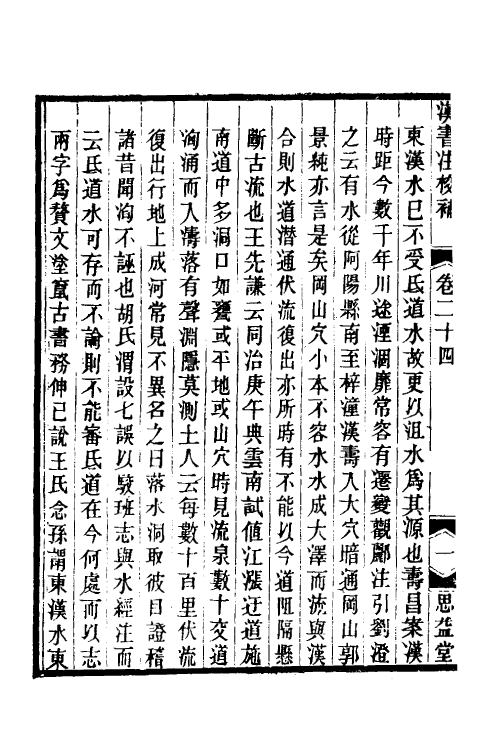 漢書注校補
卷二十四
一
思益堂
東漢水已不受氐道水故更以沮水爲其源也壽昌案漢
時距今數千年川途湮涸靡常容有遷變觀酈注引劉澄
之云有水從阿陽縣南至梓潼漢壽入大穴暗通岡山郭
景純亦言是矣岡山穴小本不容水水成大澤而流與漢
合則水道潛通伏流復出亦所時有不能以今道阻隔懸
斷古流也王先謙云同治庚午典雲南試值江漲迂道施
南道中多洞口如甕或平地或山穴時見流泉數十交道
洶涌而入濤落有聲淵隱莫測土人云每數十百里伏流
復出行地上成河常見不異名之曰落水洞取彼目證稽
諸昔聞洵不誣也胡氏渭設七誤以駮班志與水經注而
云氐道水可存而不論則不能審氐道在今何處而以志
兩字爲贅文塗竄古書務伸已說王氏念孫謂東漢水東